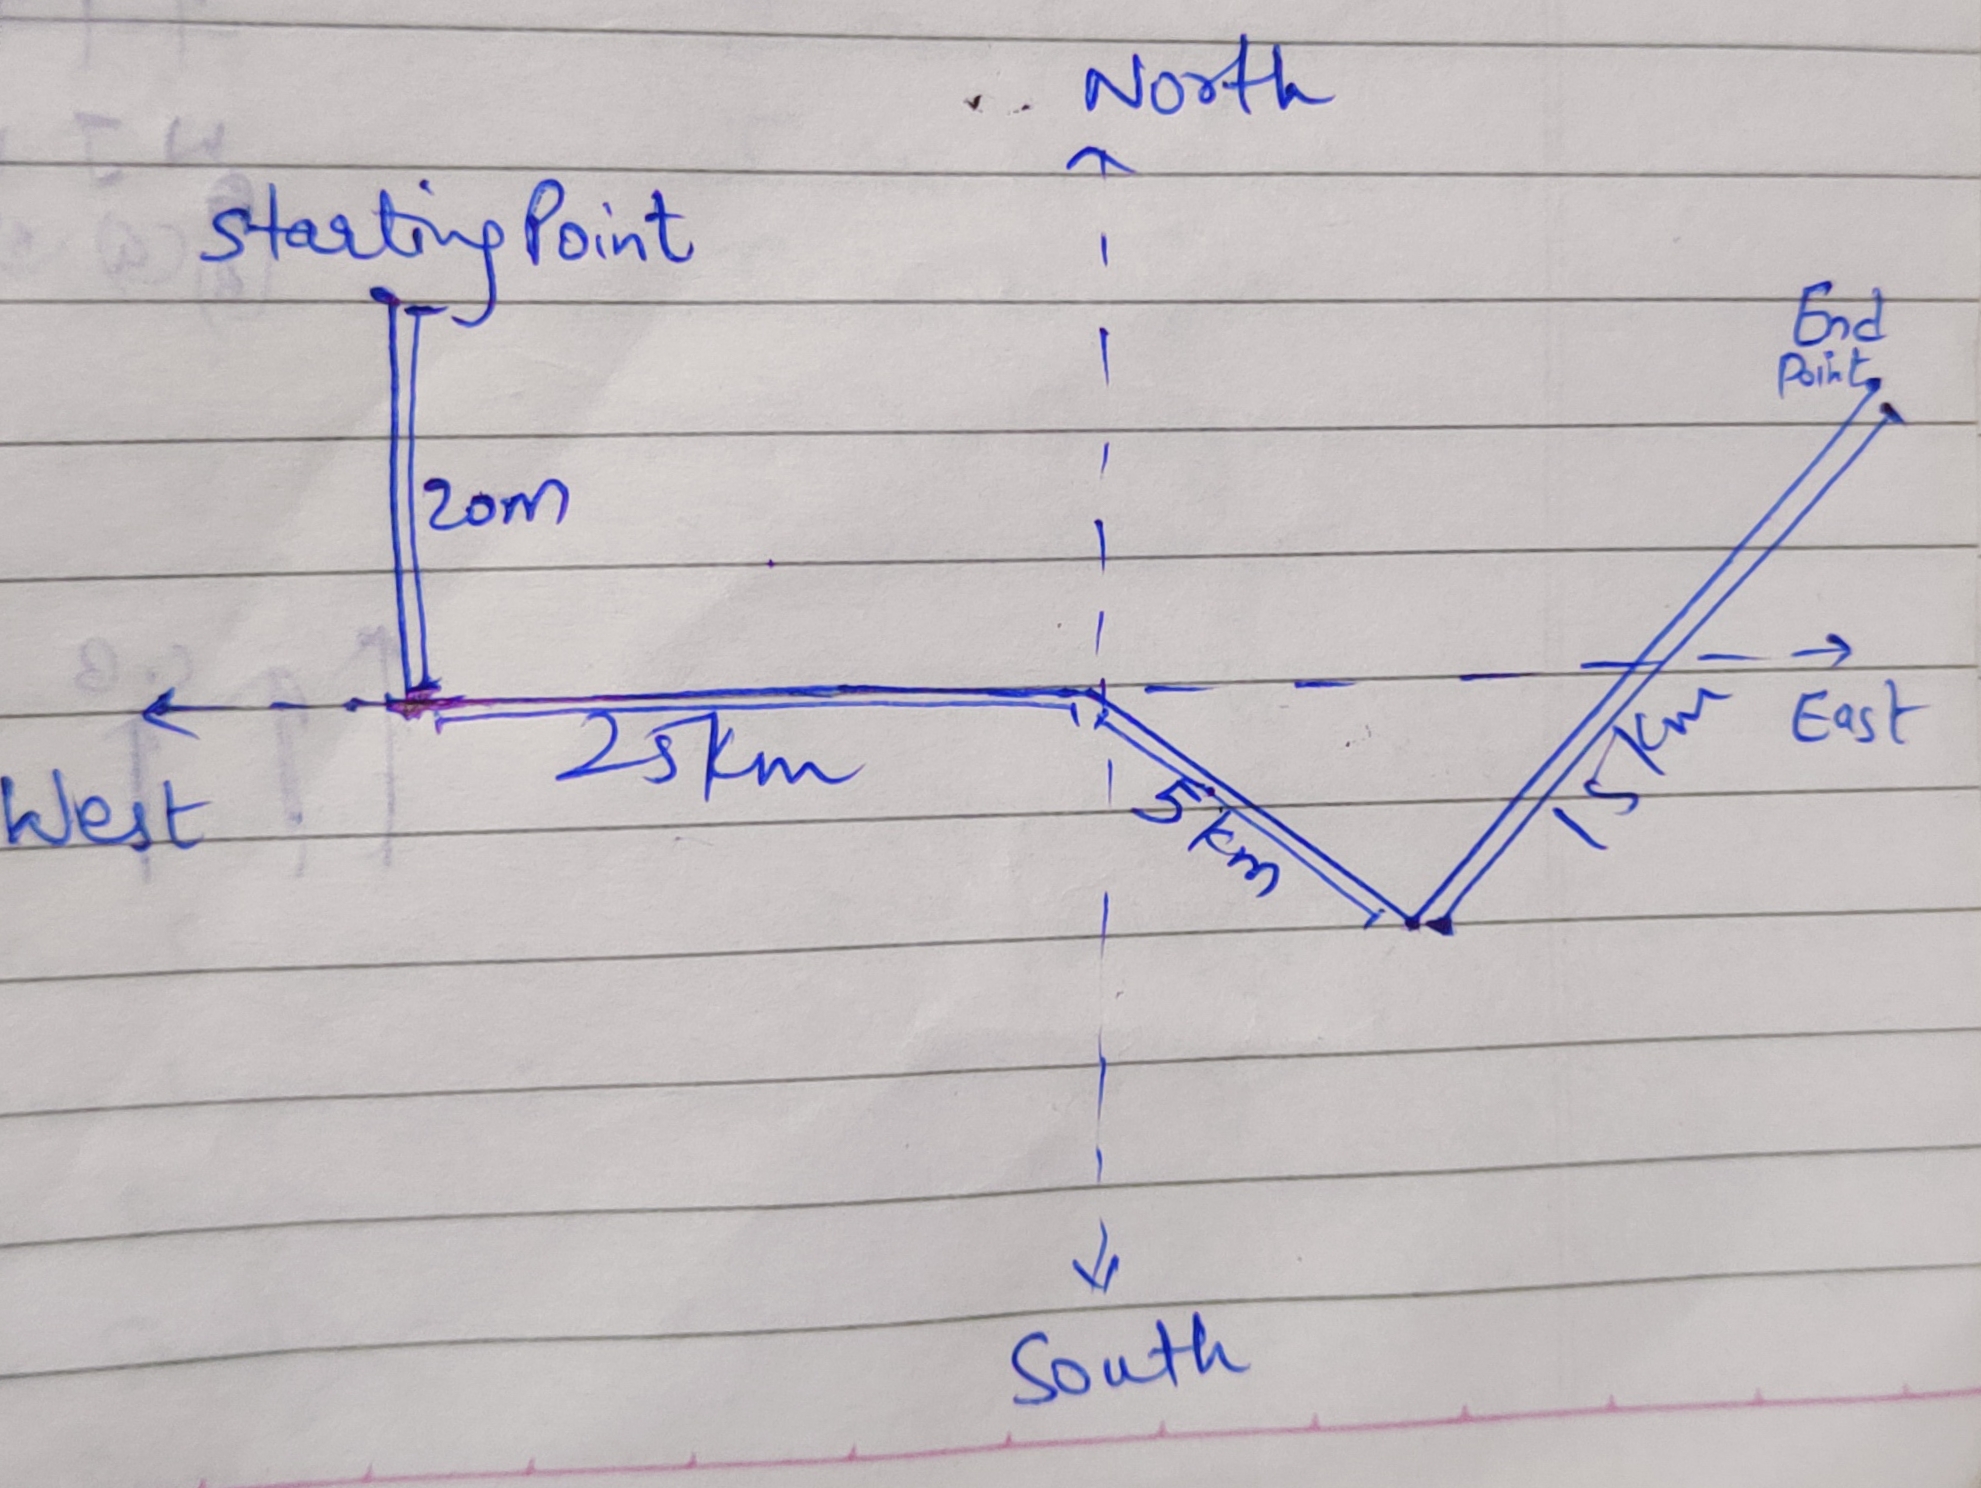 North
Starting Point
End
Point
20m
25km
East
15 km
West
5 km
South